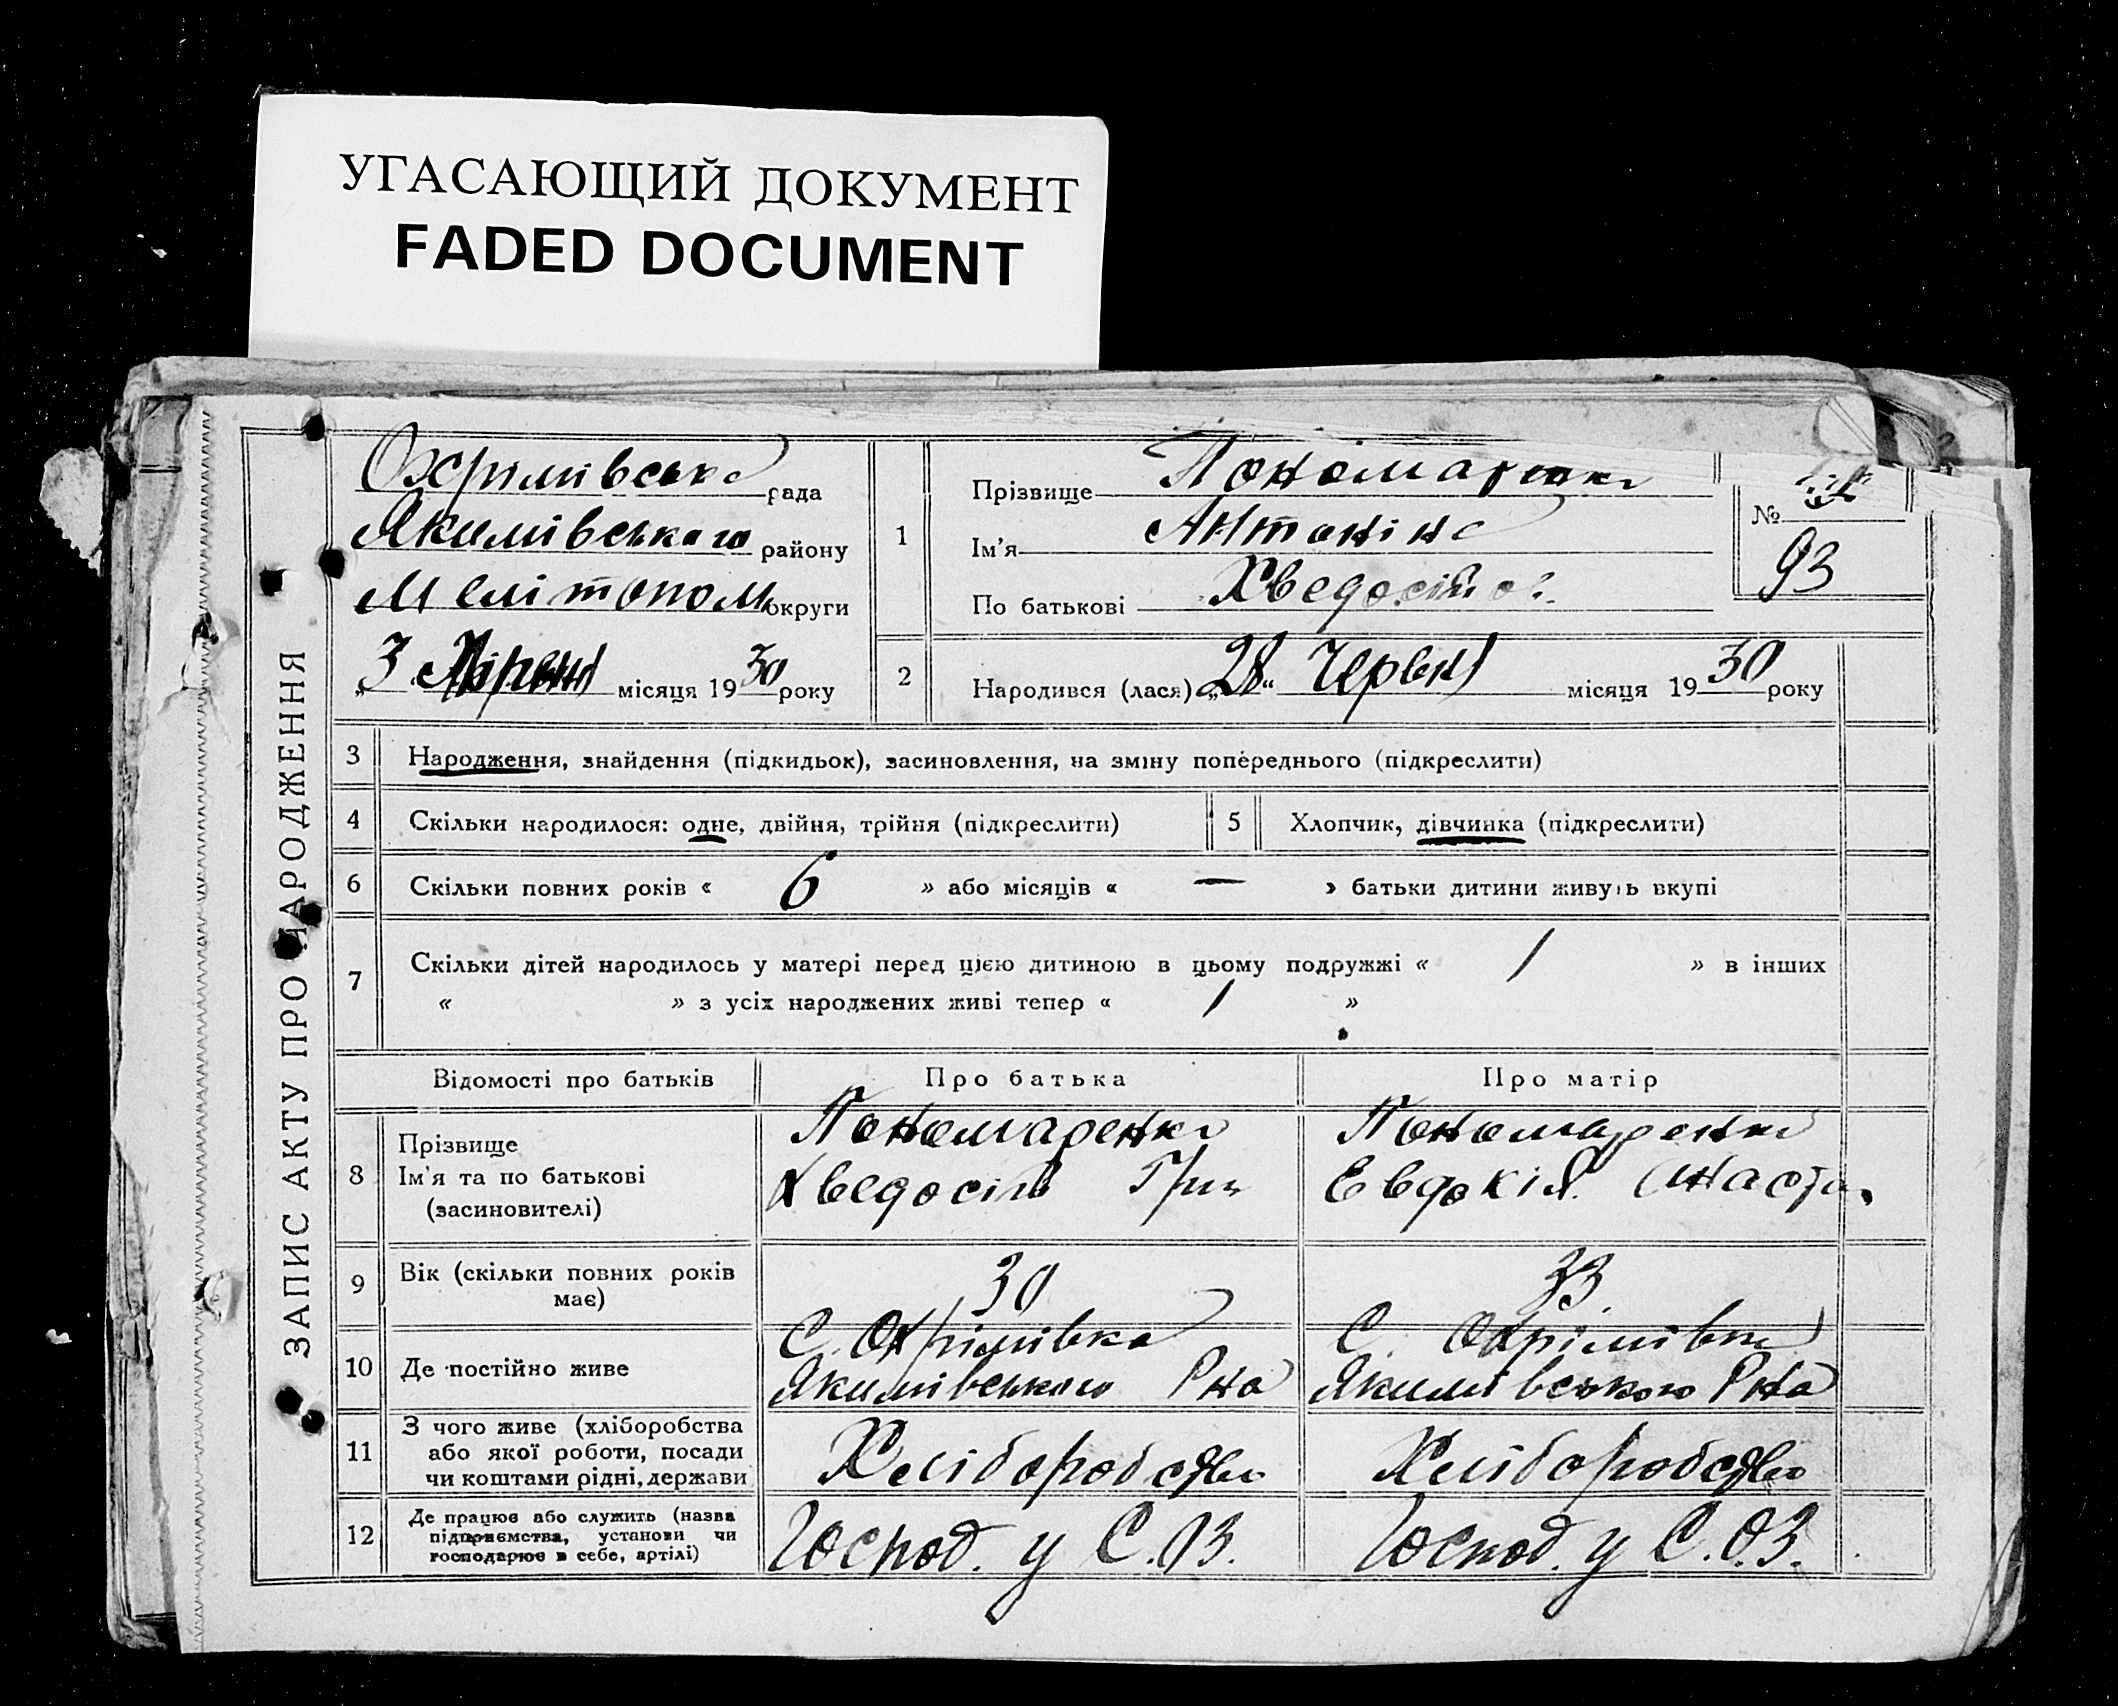 УГАСАЮЩИЙ ДОКУМЕНТ
FADED DOCUMENT
ЗАПИС АКТУ ПРО НАРОДЖЕННЯ
Охрімівська рада
Якимівського району
Мелітопол округи
„3 місяця 1930 року
1
Прізвище Пономаренко
Ім'я Антоніна
По батькові
№
93
2
Народився (лася) „28“ Червня місяця 1930 року
3 Народження, знайдення (підкидьок), засиновлення, на зміну попереднього (підкреслити)
4 Скільки народилося: одне, двійня, трійня (підкреслити) 5 Хлопчик, дівчинка (підкреслити)
6 Скільки повних років « 6 » або місяців « — » батьки дитини живуть вкупі
7 Скільки дітей народилось у матері перед цією дитиною в цьому подружжі « 1 » в інших
« » з усіх народжених живі тепер « 1 »
Відомості про батьків Про батька Про матір
8 Прізвище
Ім'я та по батькові
(засиновителі)
Пономаренко
Хведосій Гри
Пономаренко
Евдокія Анаста
9 Вік (скільки повних років
має)
30
33
10 Де постійно живе
С. Охрімівка
Якимівського Рна
С. Охрімівка
Якимівського Рна
11 З чого живе (хліборобства
або якої роботи, посади
чи коштами рідні, держави
Хліборобство
Хліборобство
12 Де працює або служить (назва
підприємства, установи чи
господарює в себе, артілі)
Господ. у С.О.З.
Господ. у С.О.З.